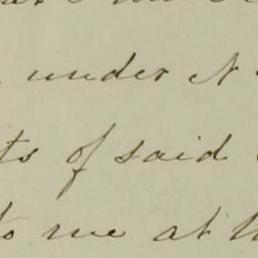 under N
ts of said
to me at th